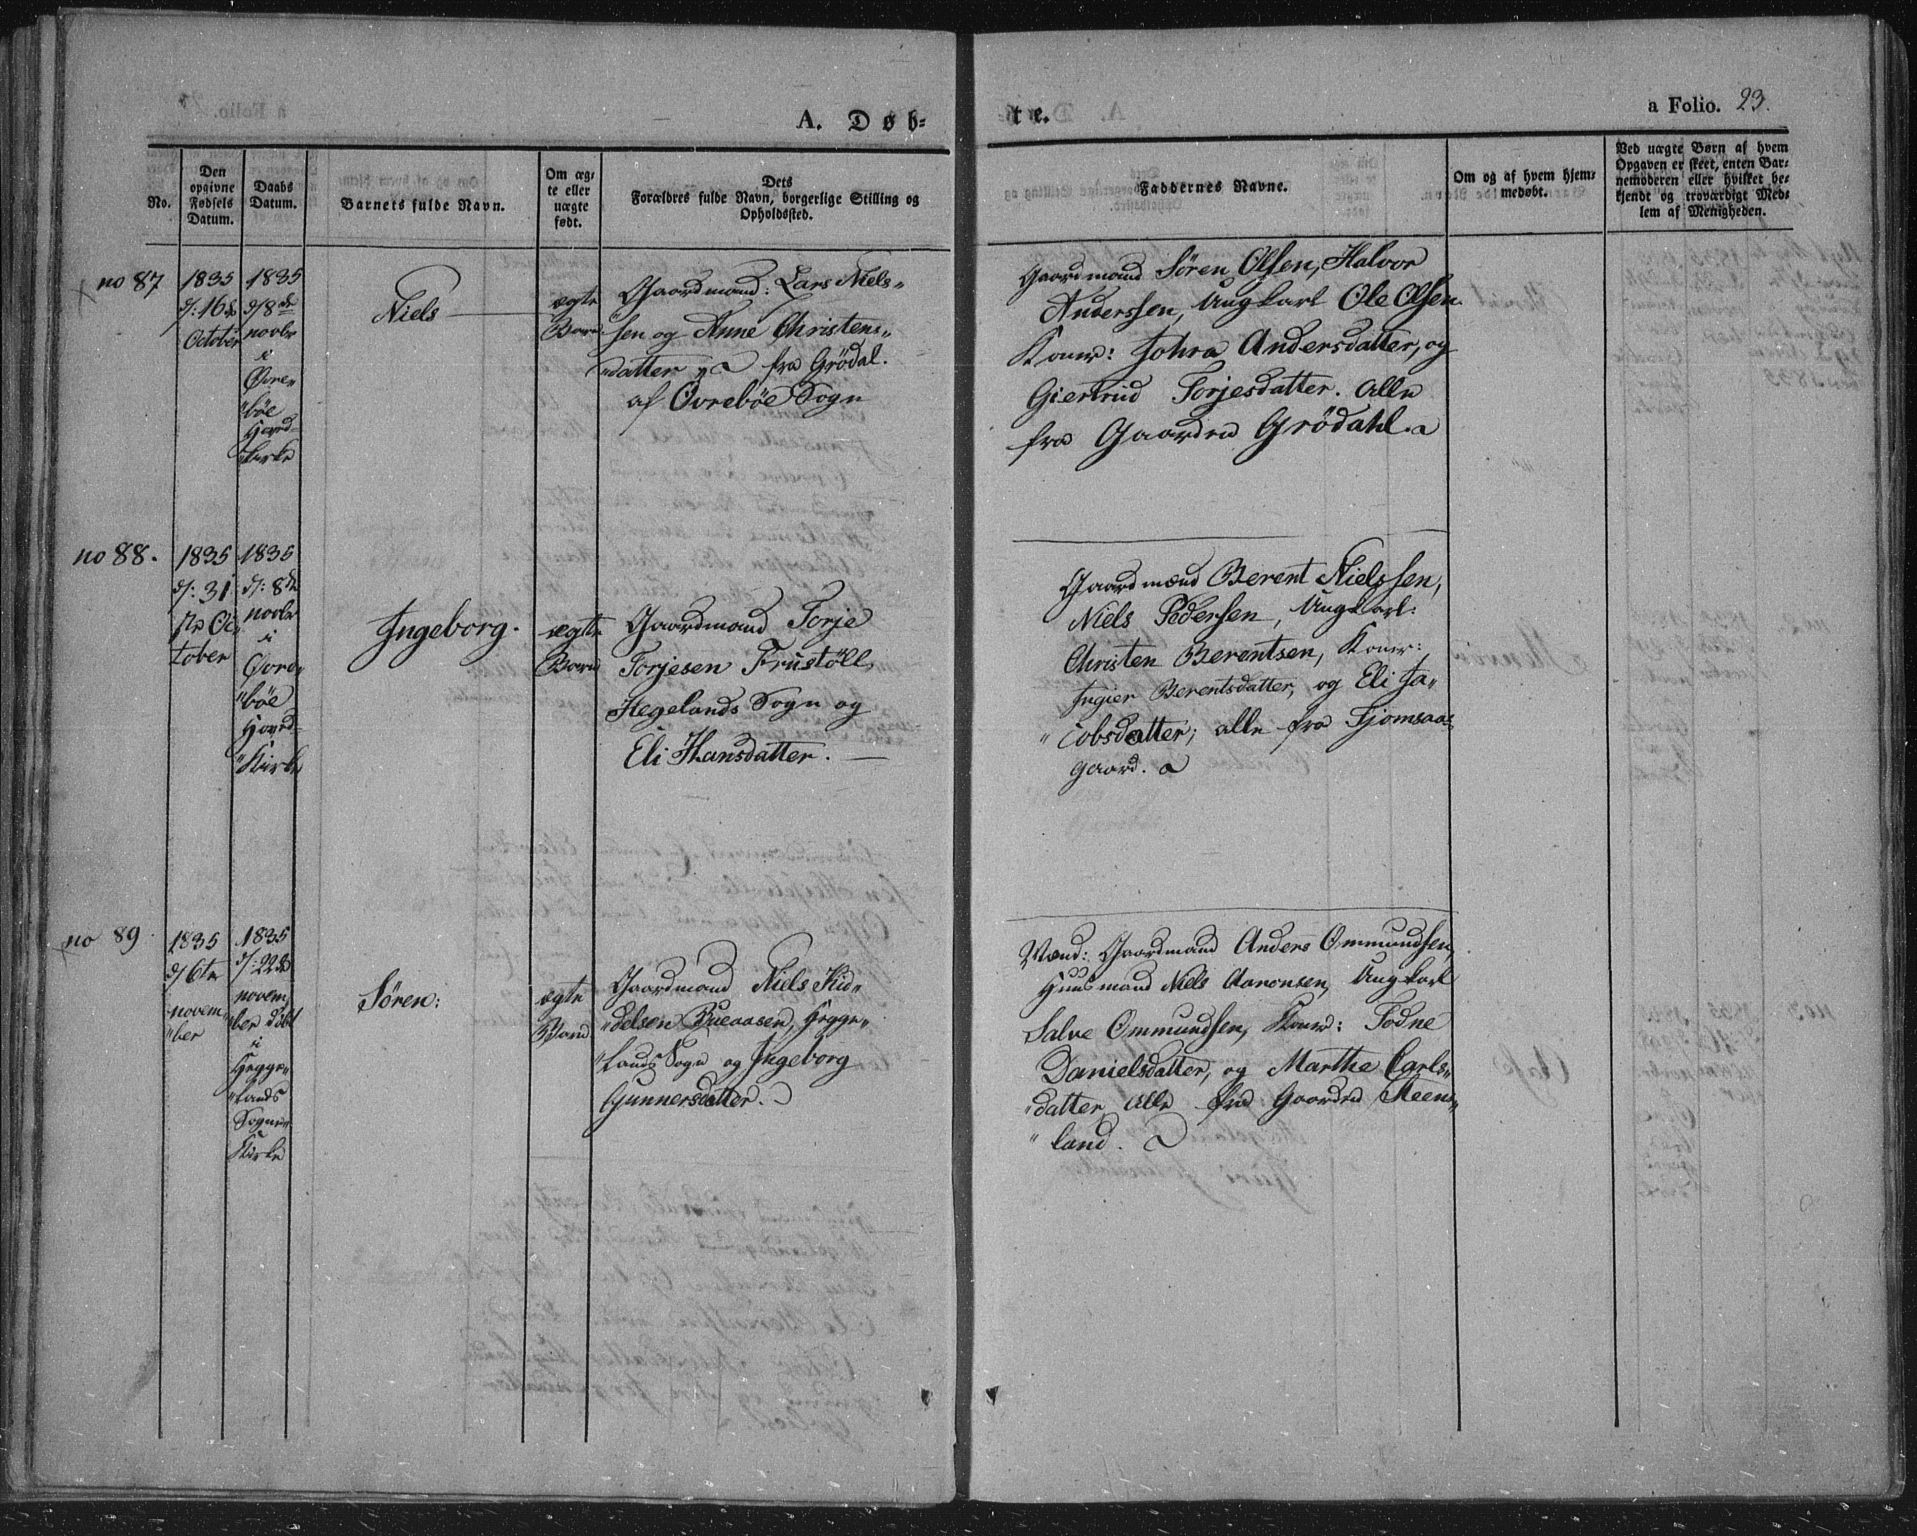 A. Døb-
te.
a Folio. 23.
No.
Den
opgivne
Fødsels
Datum.
Daabs
Datum.
Barnets fulde Navn.
Om æg-
te eller
uægte
født.
Dets
Forældres fulde Navn, borgerlige Stilling og
Opholdssted.
Faddernes Navne.
Om og af hvem hjem-
medøbt.
Ved uægte Børn af hvem
Opgaven er skeet, enten Bar-
nemoderen eller hvilket be-
kjendt og troværdigt Med-
lem af Menigheden.
no 87
1835
d/: 16de
October
1835
d/8de
novbr
i
Øvre„
„bøe
Hoved-
„kirke
Niels
ægte
Barn
Gaardmand: Lars Niels„
sen og Anne Christens„
„datter fra Grödal.
af Övrebøe Sogn
Gaardmænd Sören Olsen, Halvor
Anderssen, Ungkarl Ole Olsen
Koner: Johra Andersdatter, og
Giertrud Torjesdatter. alle
fra Gaarden Grödahl.
no 88.
1835
d/: 31
te Oc„
tober
1835
d/: 8de
novbr
i
Øvre„
„bøe
Hoved-
„Kirke
Ingeborg.
ægte
Barn
Gaardmand Torje
Torjesen Frustöll
Hegelands Sogn og
Eli Hansdatter.
Gaardmænd Berent Nielssen,
Niels Pedersen, Ungkarl:
Christen Berentsen, Koner:
Ingier Berentsdatter, og Eli Ja„
„cobsdatter; alle fra Fjomsaas
gaard.
no 89
1835
d/ 6te
novem„
„ber
1835
d/: 22de
novem„
„ber døbt
i
Hegge„
„lands
Sogne„
Kirke
Sören:
ægte
Barn
Gaardmand Niels Kid„
„delsen Bueaasen, Hegge„
„lands Sogn og Ingeborg
Gunnersdatter.
Mænd: Gaardmand Anders Ommundsen,
Huusmand Niels Aanonsen, Ungkarl
Salve Ommundsen, Koner: Todne
Danielsdatter, og Marthe Carls„
„datter, alle fra Gaarden Steens„
„land.